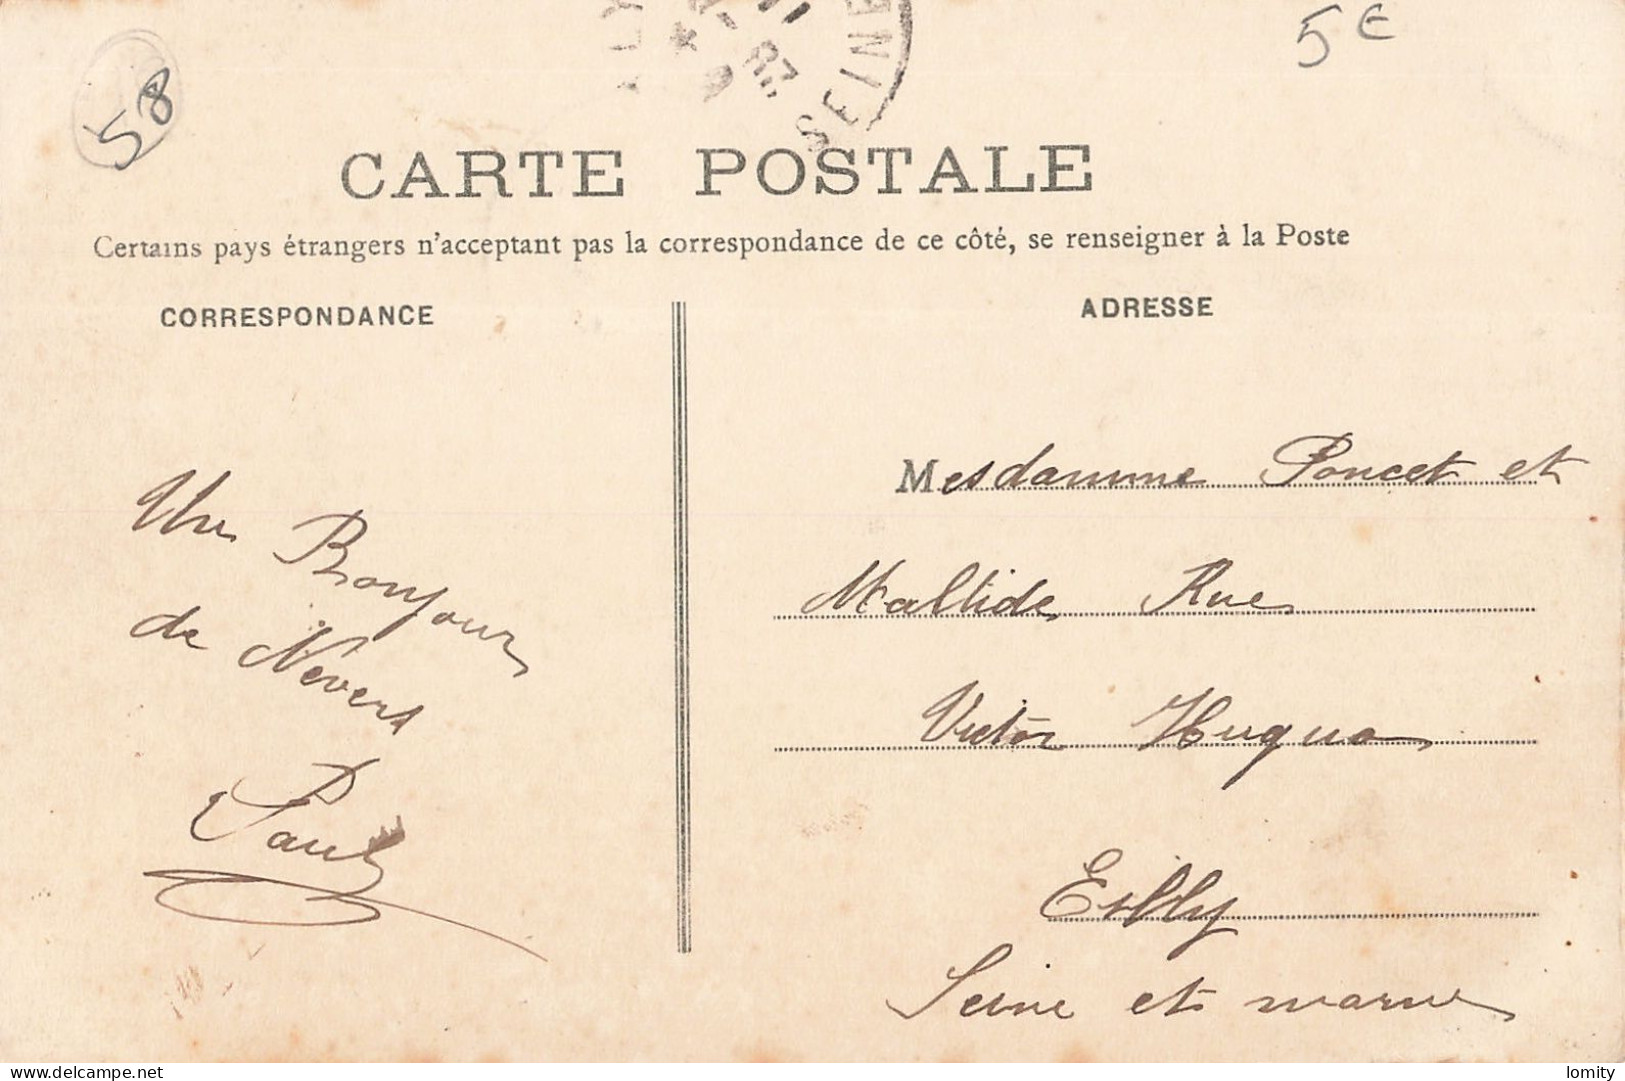 58
5€
SEINE
CARTE POSTALE
Certains pays étrangers n'acceptant pas la correspondance de ce côté, se renseigner à la Poste
CORRESPONDANCE
ADRESSE
Un Bonjour
de Nevers
Paul
Mesdamme Poncet et
Maltide Rue
Victor Huguo
Esbly
Seine et marne
delcampe.net
lomity